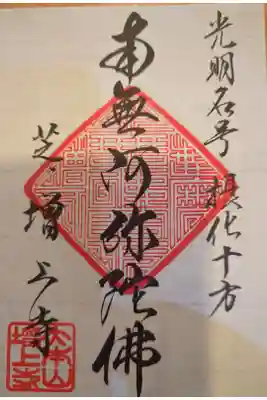 光明名号摂化十方
南無阿弥陀佛
芝増上寺
大本山増上寺